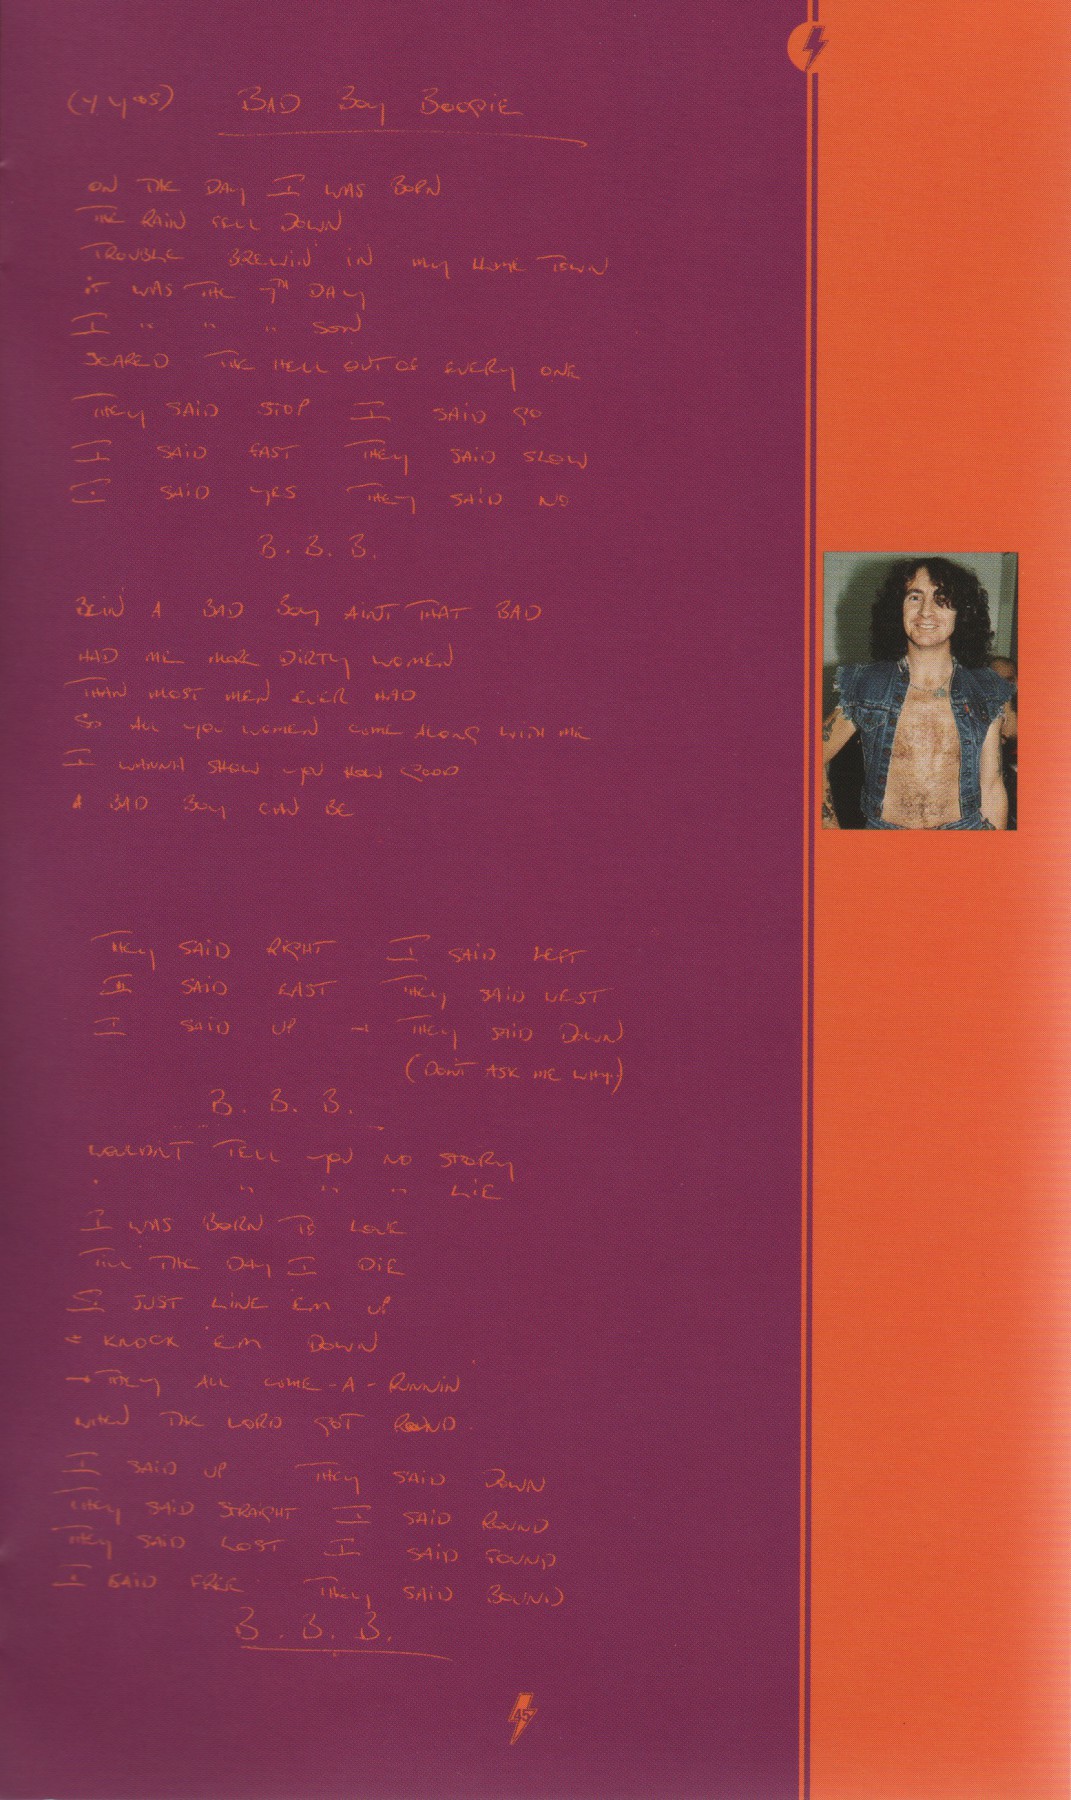 BAD BOY BOOGIE
ON THE DAY I WAS BORN
THE RAIN FELL DOWN
TROUBLE BREWIN' IN MY HOME TOWN
IT WAS THE 7TH DAY
I " " " SON
SCARED THE HELL OUT OF EVERY ONE
THEY SAID STOP I SAID GO
I SAID FAST THEY SAID SLOW
I SAID YES THEY SAID NO
B. B. B.
BEIN' A BAD BOY AINT THAT BAD
HAD ME MORE DIRTY WOMEN
THAN MOST MEN EVER HAD
SO ALL YOU WOMEN COME ALONG WITH ME
I WANNA SHOW YOU HOW GOOD
A BAD BOY CAN BE
THEY SAID RIGHT I SAID LEFT
I SAID EAST THEY SAID WEST
I SAID UP → THEY SAID DOWN
(DON'T ASK ME WHY.)
B. B. B.
WOULDN'T TELL YOU NO STORY
" " " " LIE
I WAS BORN TO LOVE
TILL THE DAY I DIE
I JUST LINE 'EM UP
KNOCK 'EM DOWN
→ THEY ALL COME-A-RUNNIN'
WHEN THE WORD GOT ROUND.
I SAID UP THEY SAID DOWN
THEY SAID STRAIGHT I SAID ROUND
THEY SAID LOST I SAID FOUND
I SAID FREE THEY SAID BOUND
B. B. B.
45